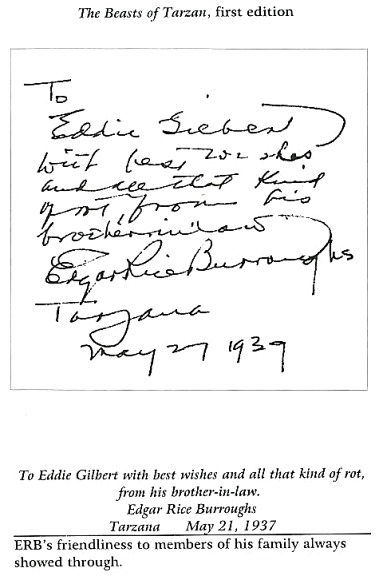 The Beasts of Tarzan, first edition
To
Eddie Gilbert
with best wishes
and all that kind
of rot, from his
brother-in-law
Edgar Rice Burroughs
Tarzana
May 27 1939
To Eddie Gilbert with best wishes and all that kind of rot,
from his brother-in-law.
Edgar Rice Burroughs
Tarzana May 21, 1937
ERB's friendliness to members of his family always
showed through.